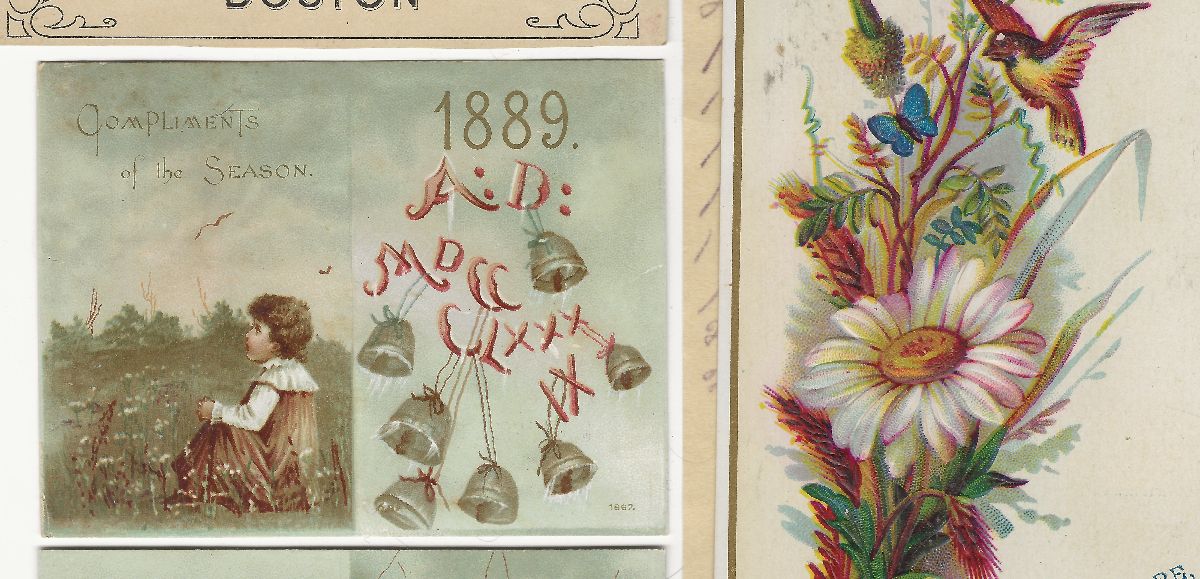 BOSTON
COMPLIMENTS
of the SEASON.
1889.
A: D:
MDCC
CLXXX
IX
1887.